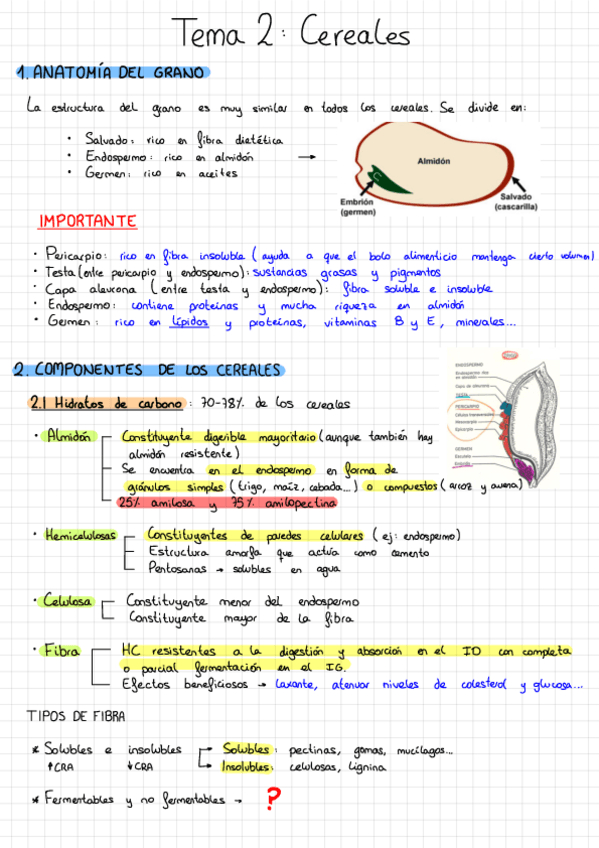 Tema 2: Cereales
1. ANATOMÍA DEL GRANO
La estructura del grano es muy similar en todos los cereales. Se divide en:
• Salvado: rico en fibra dietética
• Endospermo: rico en almidón →
• Germen: rico en aceites
Almidón
Embrión
(germen)
Salvado
(cascarilla)
IMPORTANTE
• Pericarpio: rico en fibra insoluble (ayuda a que el bolo alimenticio mantenga cierto volumen)
• Testa (entre pericarpio y endospermo): sustancias grasas y pigmentos
• Capa aleurona (entre testa y endospermo): fibra soluble e insoluble
• Endospermo: contiene proteínas y mucha riqueza en almidón
• Germen: rico en lípidos y proteínas, vitaminas B y E, minerales...
2. COMPONENTES DE LOS CEREALES
ENDOSPERMO
PERICARPIO
Mesocarpio
Epicarpio
GERMEN
Escutelo
Embrión
2.1 Hidratos de carbono: 70-78% de los cereales
• Almidón
Constituyente digerible mayoritario (aunque también hay
almidón resistente)
Se encuentra en el endospermo en forma de
gránulos simples (trigo, maíz, cebada...) o compuestos (arroz y avena)
25% amilosa y 75% amilopectina
• Hemicelulosas
Constituyentes de paredes celulares (ej: endospermo)
Estructura amorfa que actúa como cemento
Pentosanas → solubles en agua
• Celulosa
Constituyente menor del endospermo
Constituyente mayor de la fibra
• Fibra
HC resistentes a la digestión y absorción en el ID con completa
o parcial fermentación en el IG.
Efectos beneficiosos → laxante, atenuar niveles de colesterol y glucosa...
TIPOS DE FIBRA
* Solubles e insolubles
↑CRA ↓CRA
Solubles: pectinas, gomas, mucílagos...
Insolubles: celulosas, lignina
* Fermentables y no fermentables → ?